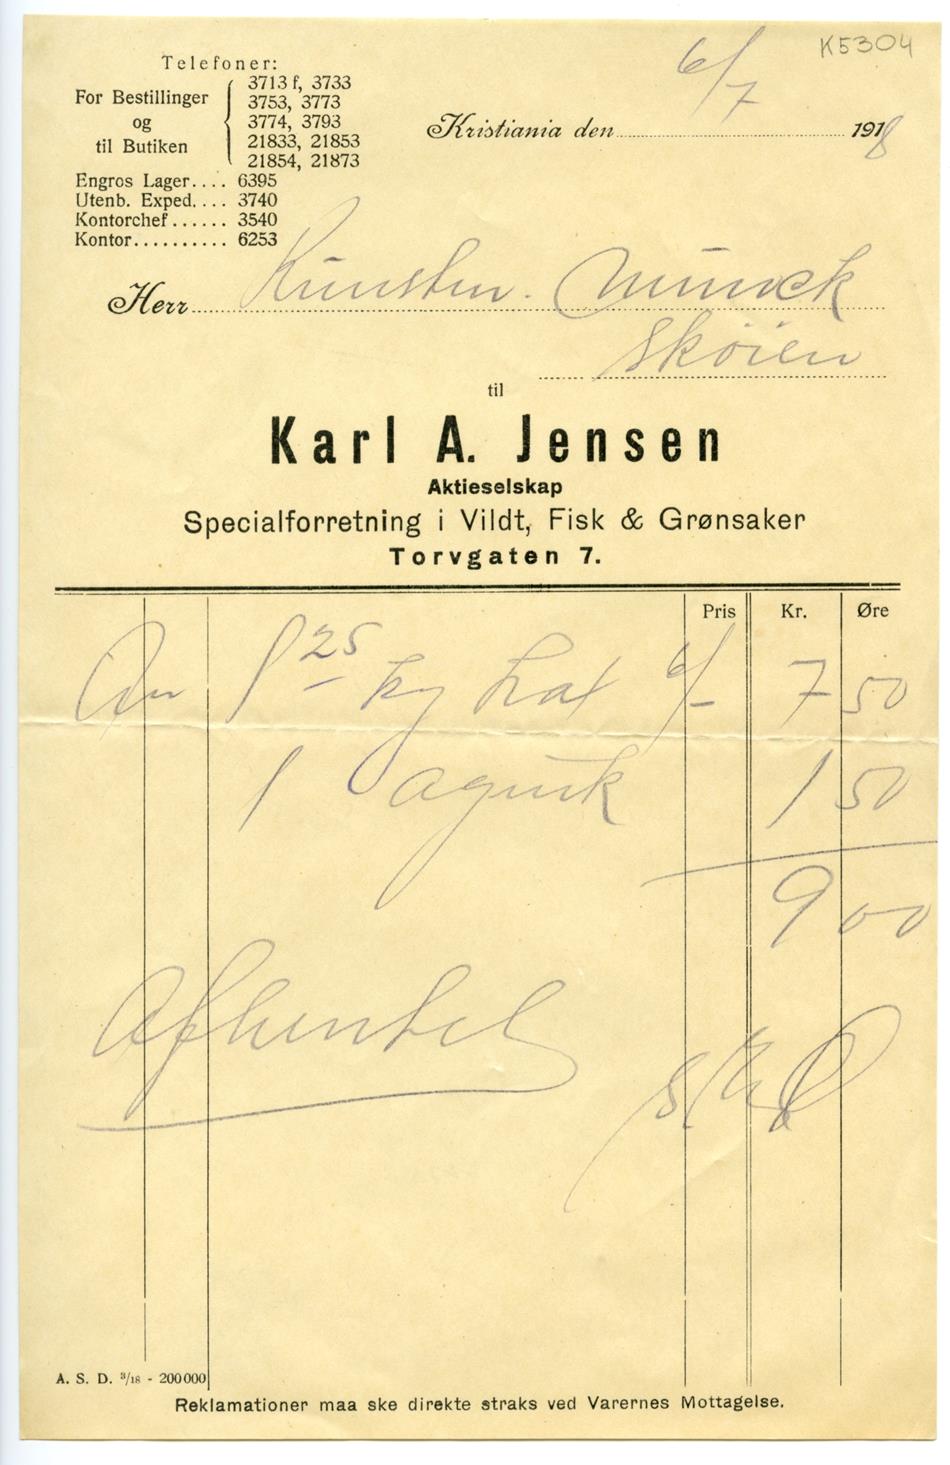 K5304
Telefoner:
For Bestillinger og til Butiken
3713 f, 3733
3753, 3773
3774, 3793
21833, 21853
21854, 21873
Engros Lager.... 6395
Utenb. Exped.... 3740
Kontorchef...... 3540
Kontor.......... 6253
Kristiania den 6/7 1918
Herr Kunstm. Munck
Skøien
til
Karl A. Jensen
Aktieselskap
Specialforretning i Vildt, Fisk & Grønsaker
Torvgaten 7.
Pris Kr. Øre
An 1 25 kg Lax 6/- 7 50
1 Agurk 1 50
9 00
Afhentet
A. S. D. 3/18 - 200000
Reklamationer maa ske direkte straks ved Varernes Mottagelse.